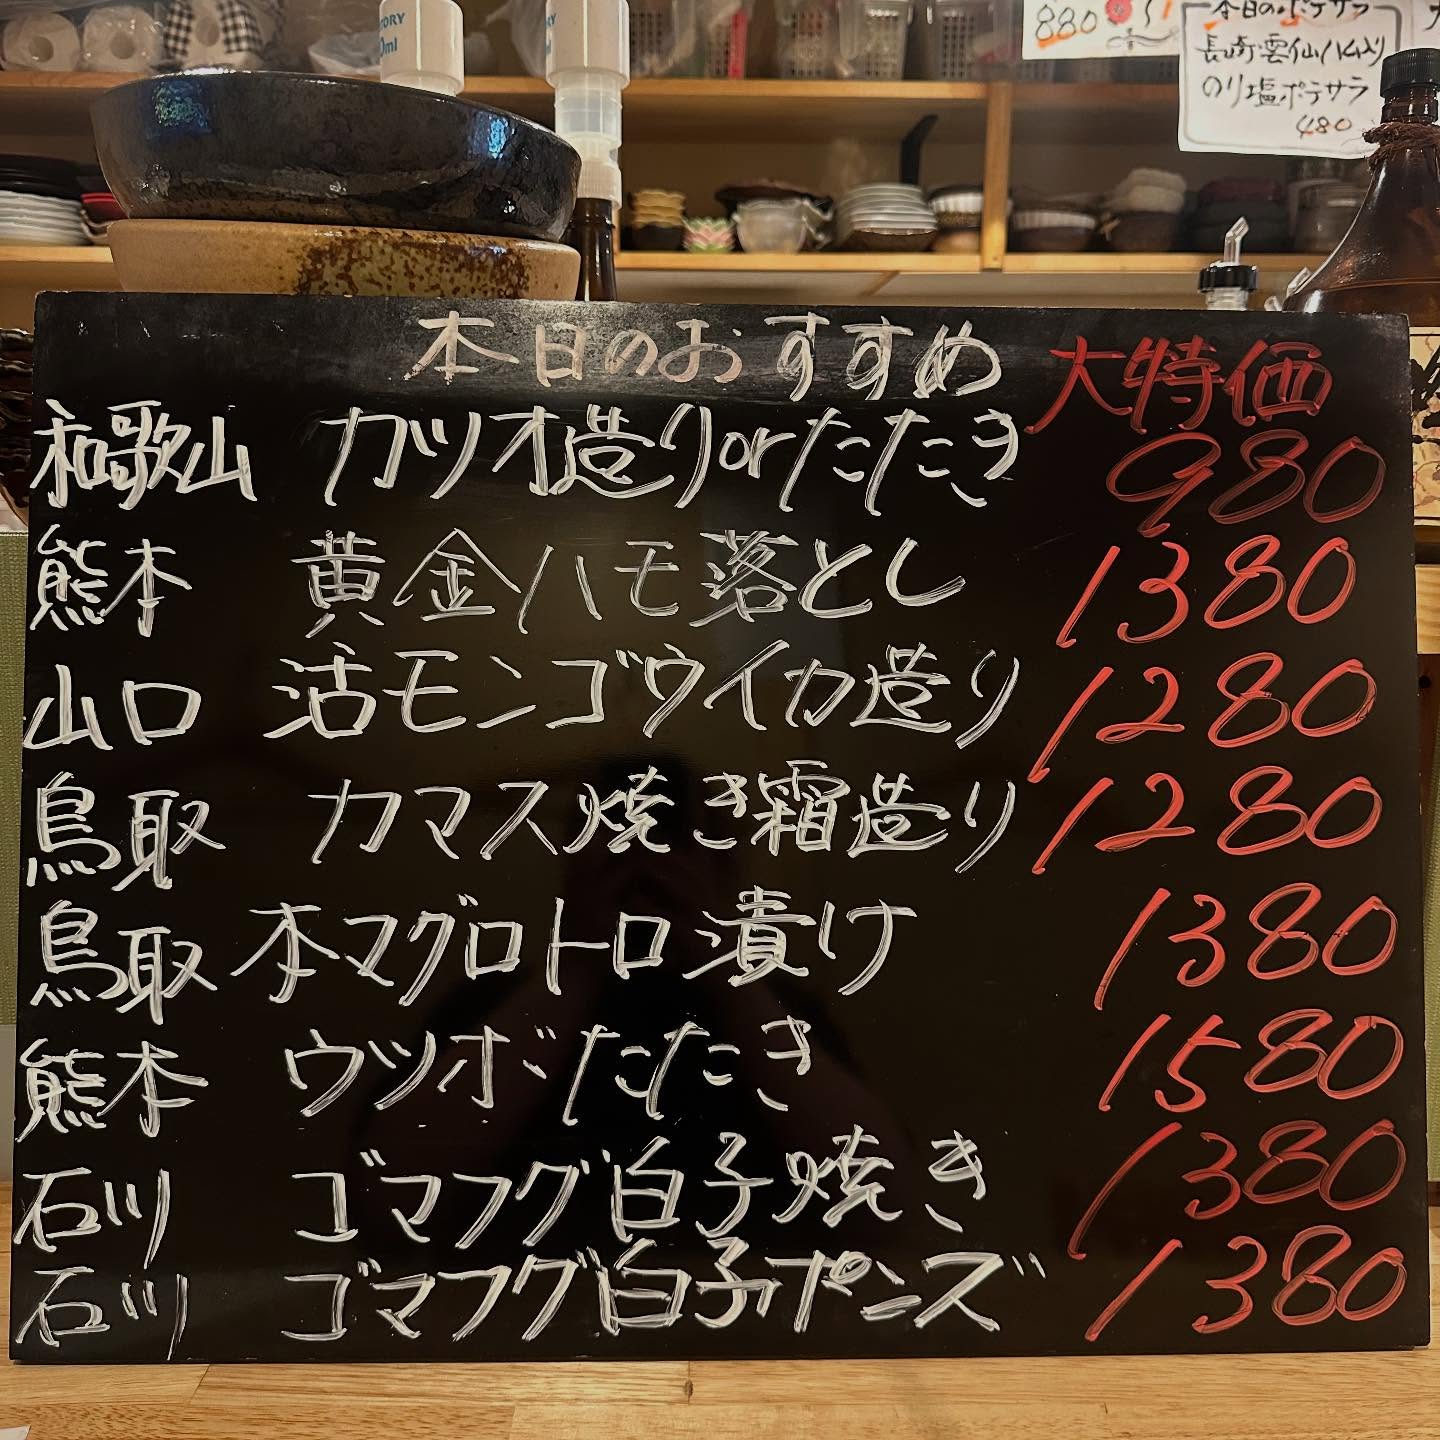 880
本日のポテサラ
長崎雲仙ハム入り
のり塩ポテサラ
480
本日のおすすめ 大特価
和歌山 カツオ造りorたたき 980
熊本 黄金ハモ落とし 1380
山口 活モンゴウイカ造り 1280
鳥取 カマス焼き霜造り 1280
鳥取 本マグロトロ漬け 1380
熊本 ウツボたたき 1580
石川 ゴマフグ白子焼き 1380
石川 ゴマフグ白子ポンズ 1380